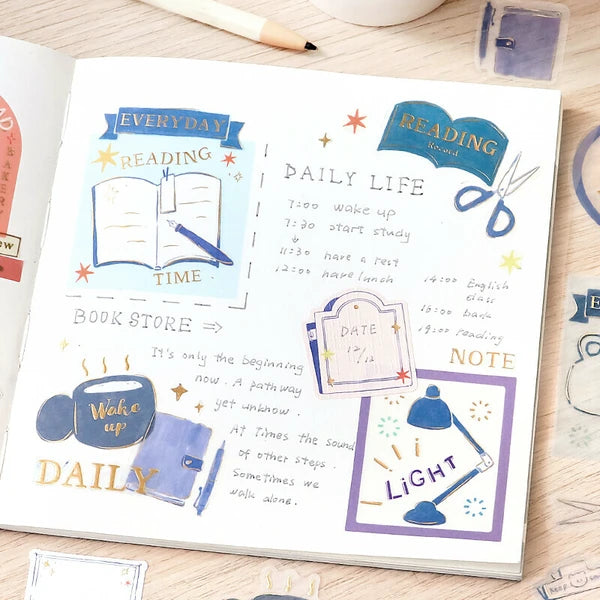 EVERYDAY
READING
TIME
BOOK STORE ⇒
It's only the beginning
now. A pathway
yet unknow.
At times the sound
of other steps.
Sometimes we
walk alone.
Wake
up
DAILY
READING
Record
DAILY LIFE
7:00 wake up
7:30 start study
↓
11:30 have a rest
12:00 have lunch
14:00 English
class
19:00 reading
DATE
12/12
NOTE
LiGHT